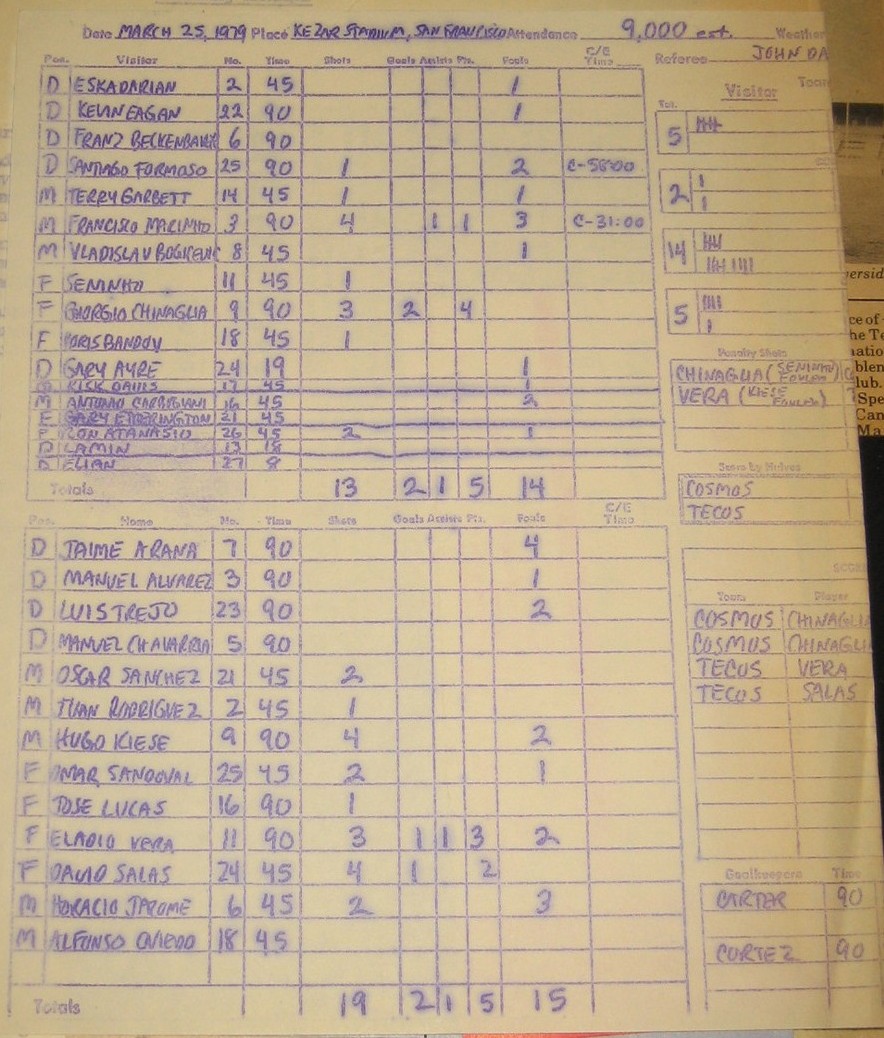 Date MARCH 25, 1979 Place KEZAR STADIUM, SAN FRANCISCO Attendance 9,000 est. Weather
Referee JOHN DA
Pos. Visitor No. Time Shots Goals Assists Pts. Fouls C/E Time
D ESKADARIAN 2 45 1
D KEVIN EAGAN 22 90 1
D FRANZ BECKENBAUR 6 90
D SANTIAGO FORMOSO 25 90 1 2 C-58:00
M TERRY GARBETT 14 45 1 1
M FRANCISCO MARINHO 3 90 4 1 1 3 C-31:00
M VLADISLAV BOGICEVIC 8 45 1
F SENINHO 11 45 1
F GIORGIO CHINAGLIA 9 90 3 2 4
F BORIS BANDOV 18 45 1
D GARY AYRE 24 19 1
RICK DAVIS 17 45 1
M ANTONIO CARBOGNANI 16 45 2
F GARY ETHERINGTON 21 45
F RON ATANASIO 26 45 2 1
D LAMIN 13 18
D ELIAN 27 8
Totals 13 2 1 5 14
Pos. Home No. Time Shots Goals Assists Pts. Fouls C/E Time
D JAIME ARANA 7 90 4
D MANUEL ALVAREZ 3 90 1
D LUIS TREJO 23 90 2
D MANUEL CHAVARRIA 5 90
M OSCAR SANCHEZ 21 45 2
M JUAN RODRIGUEZ 2 45 1
M HUGO KIESE 9 90 4 2
F OMAR SANDOVAL 25 45 2 1
F JOSE LUCAS 16 90 1
F ELADIO VERA 11 90 3 1 1 3 2
F DAVID SALAS 24 45 4 1 2
M HORACIO JAROME 6 45 2 3
M ALFONSO OVIEDO 18 45
Totals 19 2 1 5 15
Team
Visitor
Tot.
5
2
14
5
Penalty Shots
CHINAGLIA (SENINHO FOULED)
VERA (KIESE FOULED)
Score by Halves
COSMOS
TECOS
SCOR
Team Player
COSMOS CHINAGLIA
COSMOS CHINAGLI
TECOS VERA
TECOS SALAS
Goalkeepers Time
CARTER 90
CORTEZ 90
ersid
ce of
he Te
natio
blen
lub.
Spe
Can
Ma